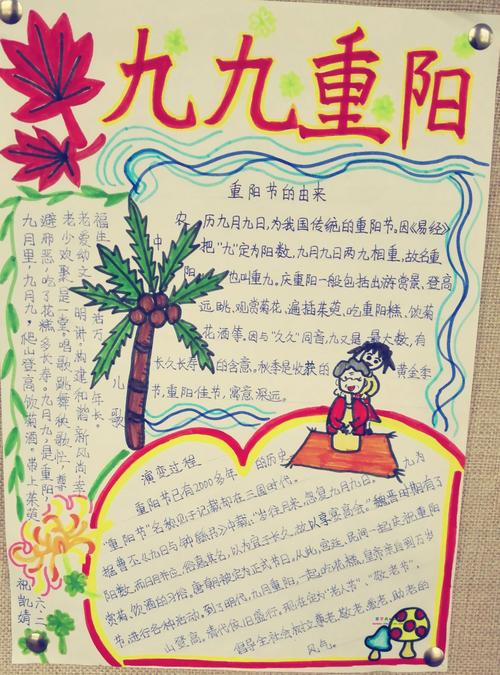 九九重阳
重阳节的由来
农历九月九日，为我国传统的重阳节。因《易经》
中把"九"定为阳数，九月九日两九相重，故名重
阳，也叫重九。庆重阳一般包括出游赏景、登高
远眺、观赏菊花、遍插茱萸、吃重阳糕、饮菊
花酒等。因与"久久"同音，九又是最大数，有
长久长寿的含意，秋季是收获的黄金季
节，重阳佳节，寓意深远。
儿歌
九月里，九月九，爬山登高饮菊酒。带上茱萸
避邪恶，吃了花糕多长寿。九月九，是重阳，
老少欢聚是一堂。唱歌跳舞秧歌忙，尊
老爱幼文明讲，构建和谐新风尚，幸
福生活万年长。
六、二
祝凯婧
演变过程
重阳节已有2000多年的历史
"重阳节"名称见于记载却在三国时代。
据曹丕《九日与钟繇书》中载："岁往月来，忽复九月九日。九为
阳数，而日月并应，俗嘉其名，以为宜于长久，故以享宴高会。"魏晋时期有了
赏菊、饮酒的习俗，唐朝被定为正式节日。从此，宫廷、民间一起庆祝重阳
节，进行各种活动。到了明代，九月重阳，一起吃花糕，皇帝亲自到万岁
山登高，清代依旧盛行。现在定为"老人节"、"敬老节"，
倡导全社会树立尊老、敬老、爱老、助老的
风气。